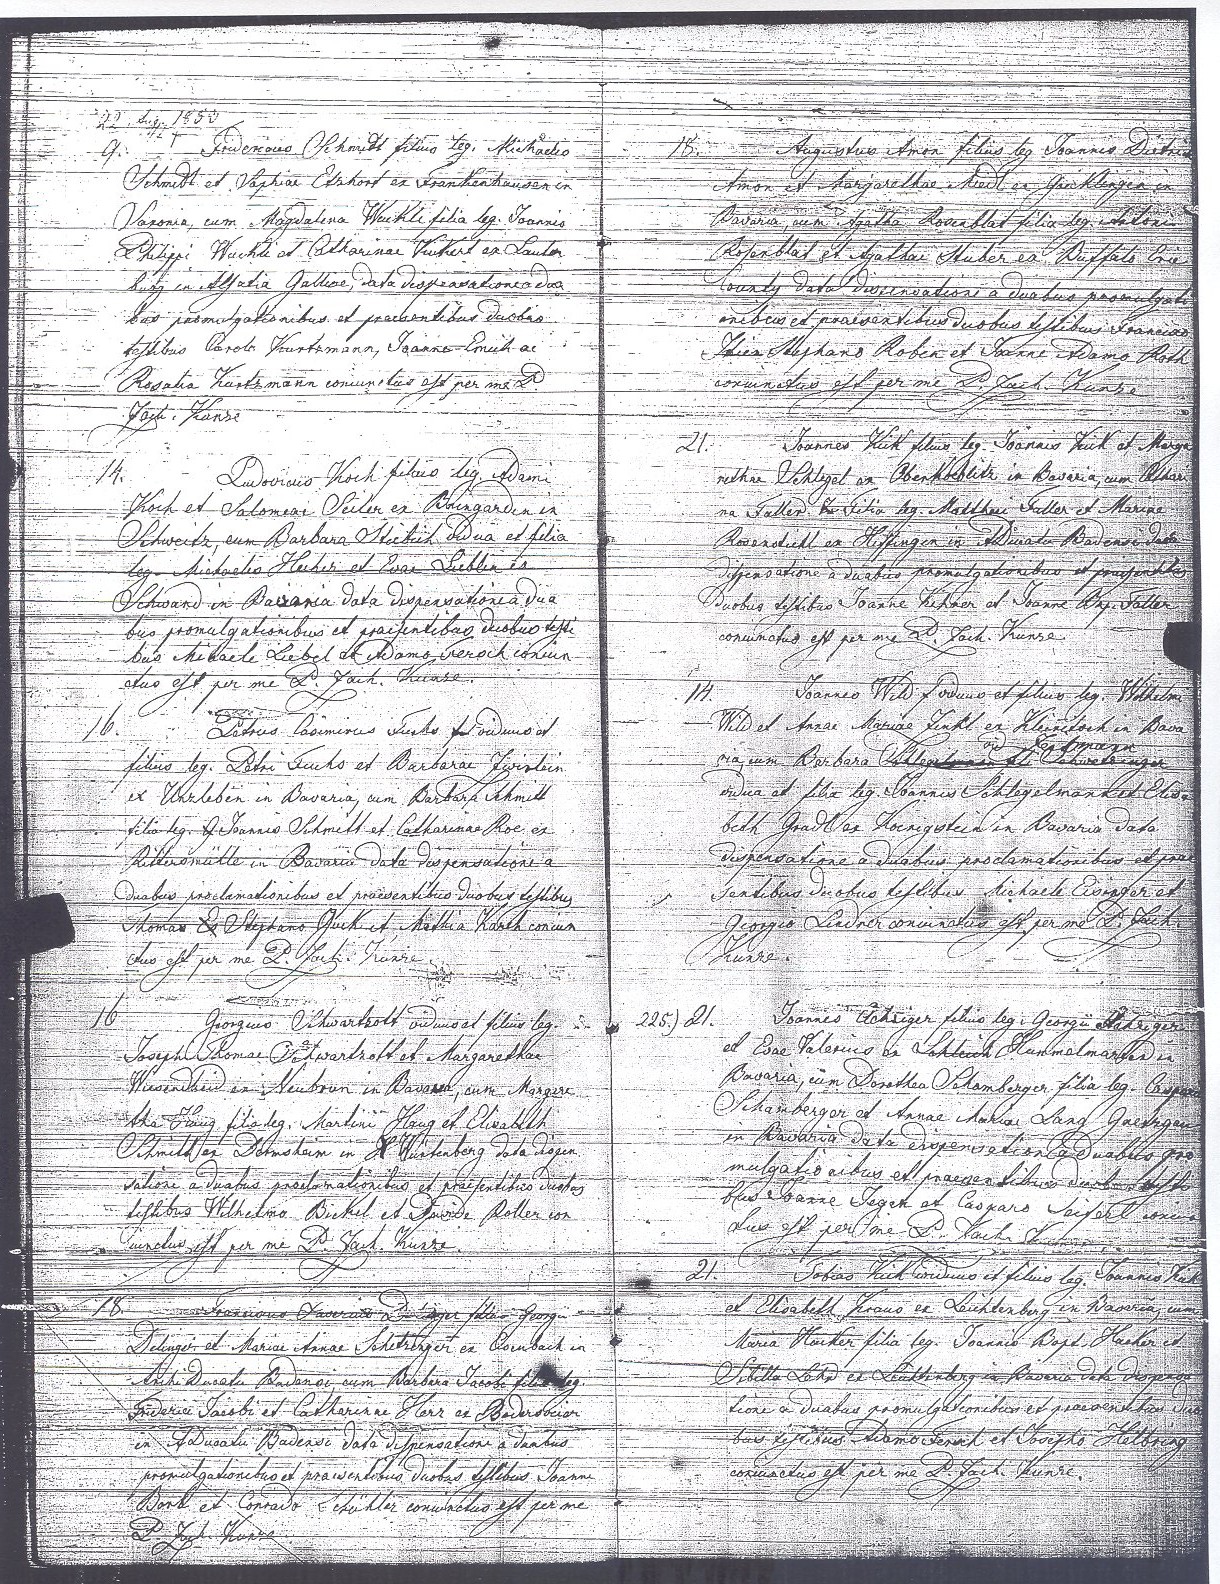 22. Aug. 1853
9. Fridericus Schmidt filius leg. Michaelis
Schmidt et Sophiae Ehrhort ex Frankenhausen in
Saxonia, cum Magdalena Wuchli filia leg. Joannis
Philippi Wuchli et Catharinae Vickert ex Lauter
burg in Alsatia Galliae, data dispensatione a dua
bus promulgationibus et praesentibus duobus
testibus Carolo Kurtzmann, Joanne Emich ac
Rosalia Kurtzmann coniunctus est per me P.
Zach. Kunze
14. Ludovicus Koch filius leg. Adami
Koch et Salomeae Seiler ex in
Schweitz, cum Barbara vidua et filia
leg. Michaelis et Evae Lieblin ex
Schwand in Bavaria data dispensatione a dua
bus promulgationibus et praesentibus duobus testi
bus Michaele Liebel et Adamo coniun
ctus est per me P. Zach. Kunze.
16. Petrus Casimirus Fuchs viduus et
filius leg. Petri Fuchs et Barbarae Zwirlein
ex Unsleben in Bavaria, cum Barbara Schmitt
filia leg. Joannis Schmitt et Catharinae Roe ex
Rittersmühle in Bavaria data dispensatione a
duabus proclamationibus et praesentibus duobus testibus
Thomas Stephano Guck et Mathia Karch coniun
ctus est per me P. Zach. Kunze.
16 Georgius Schwartzott viduus et filius leg.
Joseph Thomae Schwartzott et Margarethae
Wiesendheid ex Neubrun in Bavaria, cum Margare
tha Haug filia leg. Martini Haug et Elisabeth
Schmitt ex Dermsheim in Würtenberg data dispen
satione a duabus proclamationibus et praesentibus duobus
testibus Wilhelmo Bickel et Davide Roller con
iunctus est per me P. Zach. Kunze.
18. Franciscus Xaverius filius Georgii
Delinger et Mariae Annae ex in
Archi Ducatu Badensi cum Barbara Jacobi filia leg.
Friderici Jacobi et Catharinae Herr ex
in ADucatu Badensi data dispensatione a duabus
promulgationibus et praesentibus duobus testibus Joanne
Bork et Conrado Schühler coniunctus est per me
P. Zach. Kunze
18. Augustus Amon filius leg. Joannis
Amon et Margarethae Miedl ex Göcklingen in
Bavaria, cum Agatha Rosenblat filia leg. Antonii
Rosenblat et Agathae Huber ex Buffalo Erie
County data dispensatione a duabus promulgati
onibus et praesentibus duobus testibus Francisco
Stephano Roben et Joanne Adamo Roth
coniunctus est per me P. Zach. Kunze
21. Joannes Kick filius leg. Joannis Kick et Marga
rethae Schlegel ex in Bavaria, cum Cathari
na Faller filia leg. Matthaei Faller et Mariae
Rosenstiehl ex Hiffingen in ADucatu Badensi data
dispensatione a duabus promulgationibus et praesentibus
duobus testibus Joanne Kihner et Joanne Bap. Faller
coniunctus est per me P. Zach. Kunze
14. Joannes Wild viduus et filius leg. Wilhelmi
Wild et Annae Mariae Zinkl ex in Bava
ria, cum Barbara
vidua et filia leg. Joannis Schlegelmann et Elisa
beth Gradl ex Koenigstein in Bavaria data
dispensatione a duabus proclamationibus et prae
sentibus duobus testibus Michaele Eisinger et
Georgio Lindner coniunctus est per me P. Zach.
Kunze.
225.) 21. Joannes filius leg. Georgii
et Evae Valerius ex Hummelmarten in
Bavaria, cum Dorothea Schamberger filia leg. Caspari
Schamberger et Annae Mariae Lang
in Bavaria data dispensatione a duabus pro
mulgationibus et praesentibus duobus testi
bus Joanne et Casparo Seifert coniun
ctus est per me P. Zach. Kunze
21. Tobias Kick viduus et filius leg. Joannis Kick
et Elisabeth Kraus ex Leichtenberg in Bavaria, cum
Maria Hacker filia leg. Joannis Bapt. Hacker et
Sibilla ex Leuchtenberg in Bavaria data dispensa
tione a duabus promulgationibus et praesentibus duo
bus testibus Adamo et Josepho Helbring
coniunctus est per me P. Zach. Kunze.